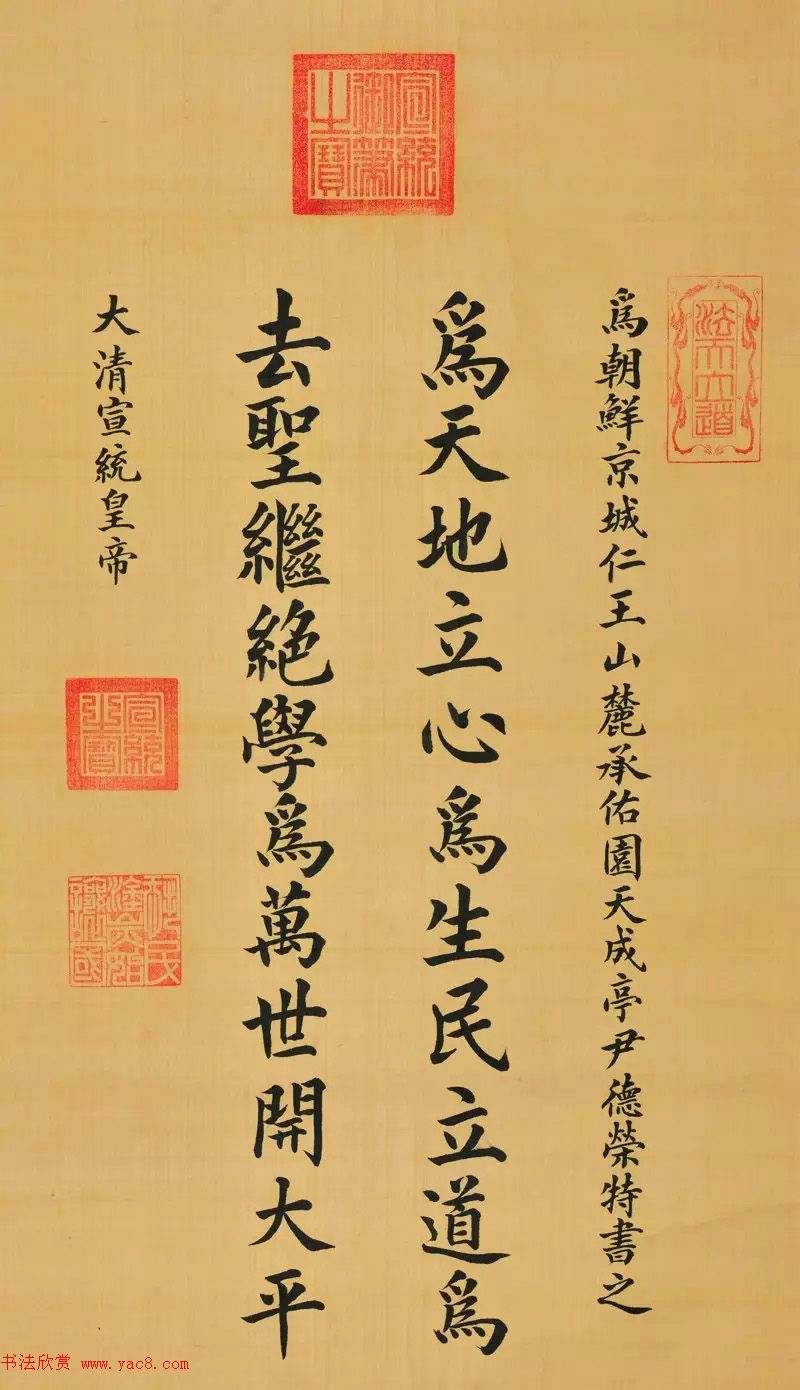 宣統御筆之寶
法天大道
爲朝鮮京城仁王山麓承佑園天成亭尹德榮特書之
爲天地立心爲生民立道爲
去聖繼絕學爲萬世開大平
大清宣統皇帝
宣統之寶
书法欣赏 www.yac8.com